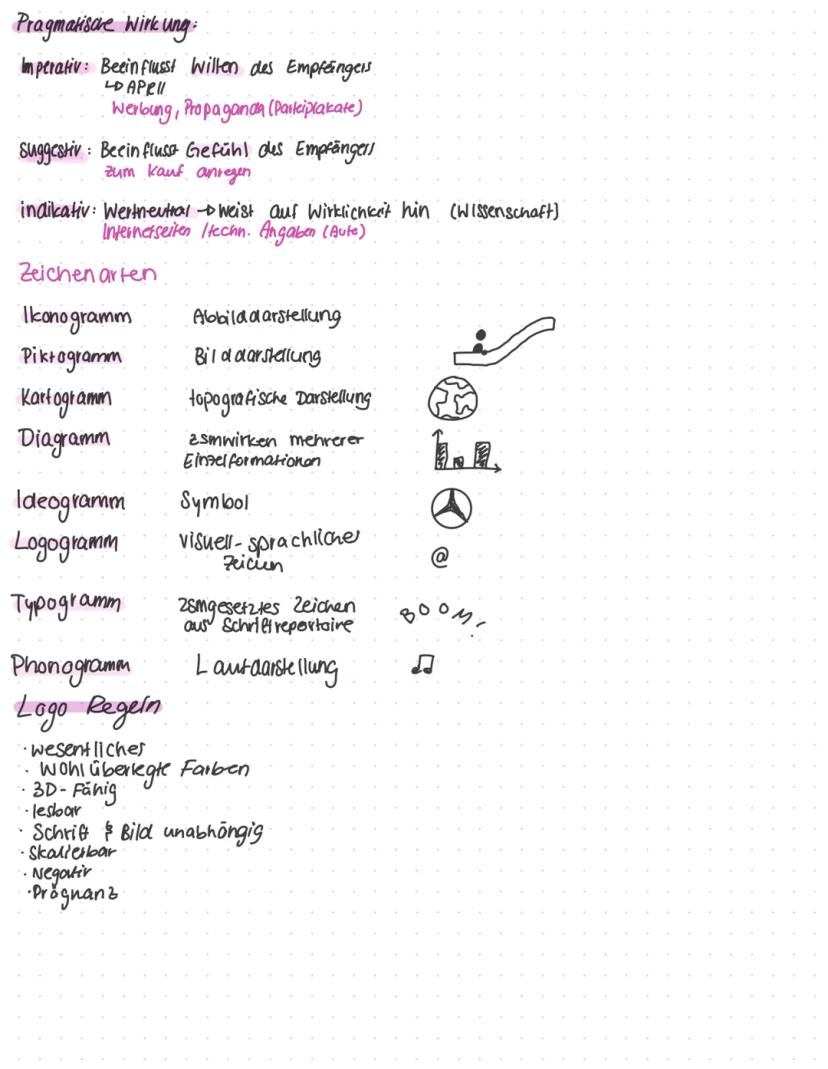 Pragmatische Wirkung:
Imperativ: Beeinflusst Willen des Empfängers
↳ APEll
Werbung, Propaganda (Parteiplakate)
suggestiv: Beeinflusst Gefühl des Empfängers
zum Kauf anregen
indikativ: Wertneutral → Weist auf Wirklichkeit hin (Wissenschaft)
Internetseiten / techn. Angaben (Auto)
Zeichenarten
Ikonogramm Abbilddarstellung
Piktogramm Bilddarstellung
Kartogramm topografische Darstellung
Diagramm zsmwirken mehrerer
Einzelformationen
Ideogramm Symbol
Logogramm visuell-sprachliche
Zeichen @
Typogramm zsmgesetztes Zeichen
aus Schriftrepertoire BOOM!
Phonogramm Lautdarstellung
Logo Regeln
· wesentliches
· Wohl überlegte Farben
· 3D-Fähig
· lesbar
· Schrift & Bild unabhängig
· Skalierbar
· Negativ
· Prägnanz